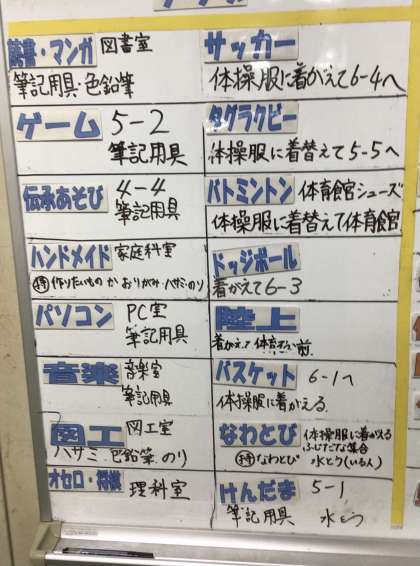 読書・マンガ 図書室
筆記用具・色鉛筆
ゲーム 5-2
筆記用具
伝承あそび 4-4
筆記用具
ハンドメイド 家庭科室
持 作りたいもの か おりがみ・ハサミ・のり
パソコン PC室
筆記用具
音楽 音楽室
筆記用具
図工 図工室
ハサミ 色鉛筆 のり
オセロ・将棋 理科室
サッカー
体操服に着がえて6-4へ
タグラグビー
体操服に着替えて5-5へ
バトミントン 体育館シューズ
体操服に着替えて体育館
ドッジボール
着がえて6-3
陸上
着がえて 前
バスケット 6-1へ
体操服に着がえる
なわとび 体操服に着がえる
ふじだな集合
持 なわとび 水とう(いる人)
けんだま 5-1
筆記用具 水とう